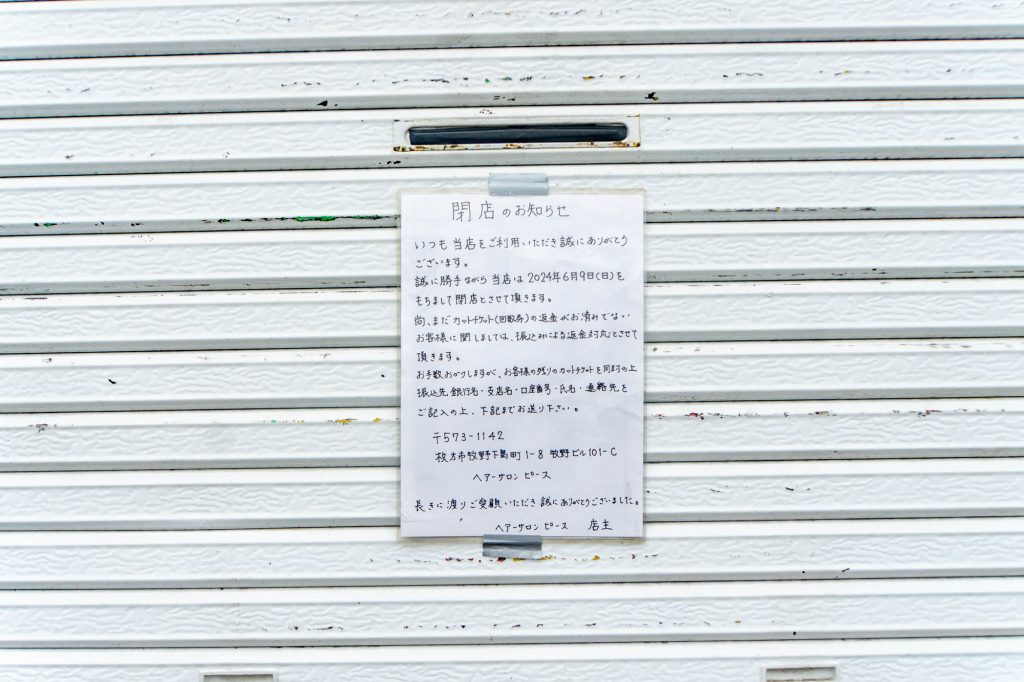 閉店のお知らせ
いつも当店をご利用いただき誠にありがとう
ございます。
誠に勝手ながら当店は2024年6月9日(日)を
もちまして閉店とさせて頂きます。
尚、まだカットチケット(回数券)の返金がお済みでない
お客様に関しましては、振込みによる返金対応とさせて
頂きます。
お手数おかけしますが、お客様の残りのカットチケットを同封の上
振込先銀行名・支店名・口座番号・氏名・連絡先を
ご記入の上、下記までお送り下さい。
〒573-1142
枚方市牧野下島町1-8 牧野ビル101-C
ヘアーサロン ピース
長きに渡りご愛顧いただき誠にありがとうございました。
ヘアーサロン ピース 店主